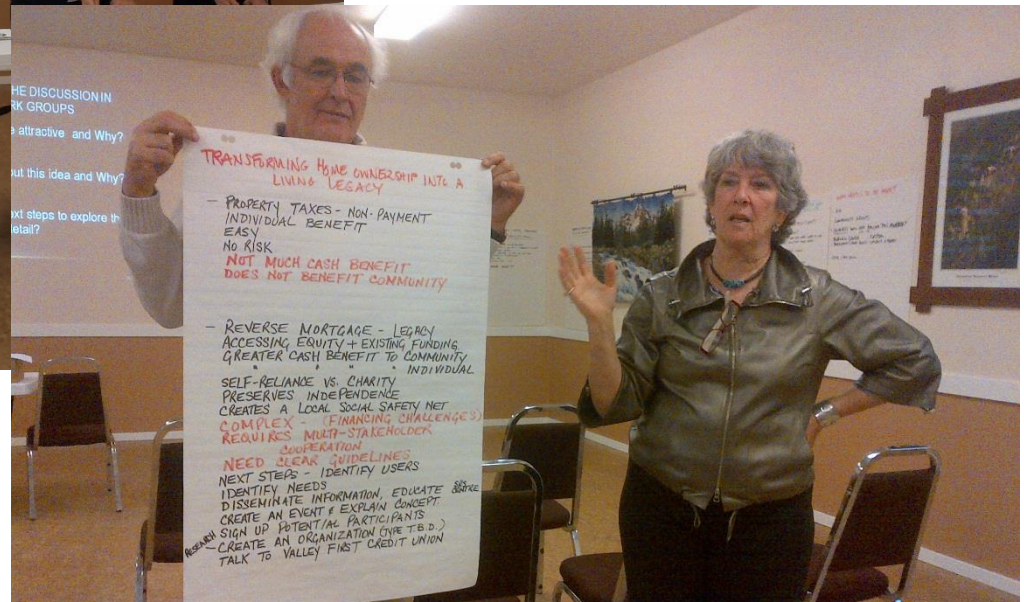 HE DISCUSSION IN
RK GROUPS
e attractive and Why?
out this idea and Why?
ext steps to explore th
etail?
TRANSFORMING HOME OWNERSHIP INTO A
LIVING LEGACY
- PROPERTY TAXES - NON-PAYMENT
INDIVIDUAL BENEFIT
EASY
NO RISK
NOT MUCH CASH BENEFIT
DOES NOT BENEFIT COMMUNITY
- REVERSE MORTGAGE - LEGACY
ACCESSING EQUITY + EXISTING FUNDING
GREATER CASH BENEFIT TO COMMUNITY
" " " " INDIVIDUAL
SELF-RELIANCE VS. CHARITY
PRESERVES INDEPENDENCE
CREATES A LOCAL SOCIAL SAFETY NET
COMPLEX - (FINANCING CHALLENGES)
REQUIRES MULTI-STAKEHOLDER
COOPERATION
NEED CLEAR GUIDELINES
NEXT STEPS - IDENTIFY USERS
IDENTIFY NEEDS
DISSEMINATE INFORMATION, EDUCATE CENTRE
CREATE AN EVENT & EXPLAIN CONCEPT
SIGN UP POTENTIAL PARTICIPANTS
RESEARCH - CREATE AN ORGANIZATION (TYPE T.B.D.)
TALK TO VALLEY FIRST CREDIT UNION